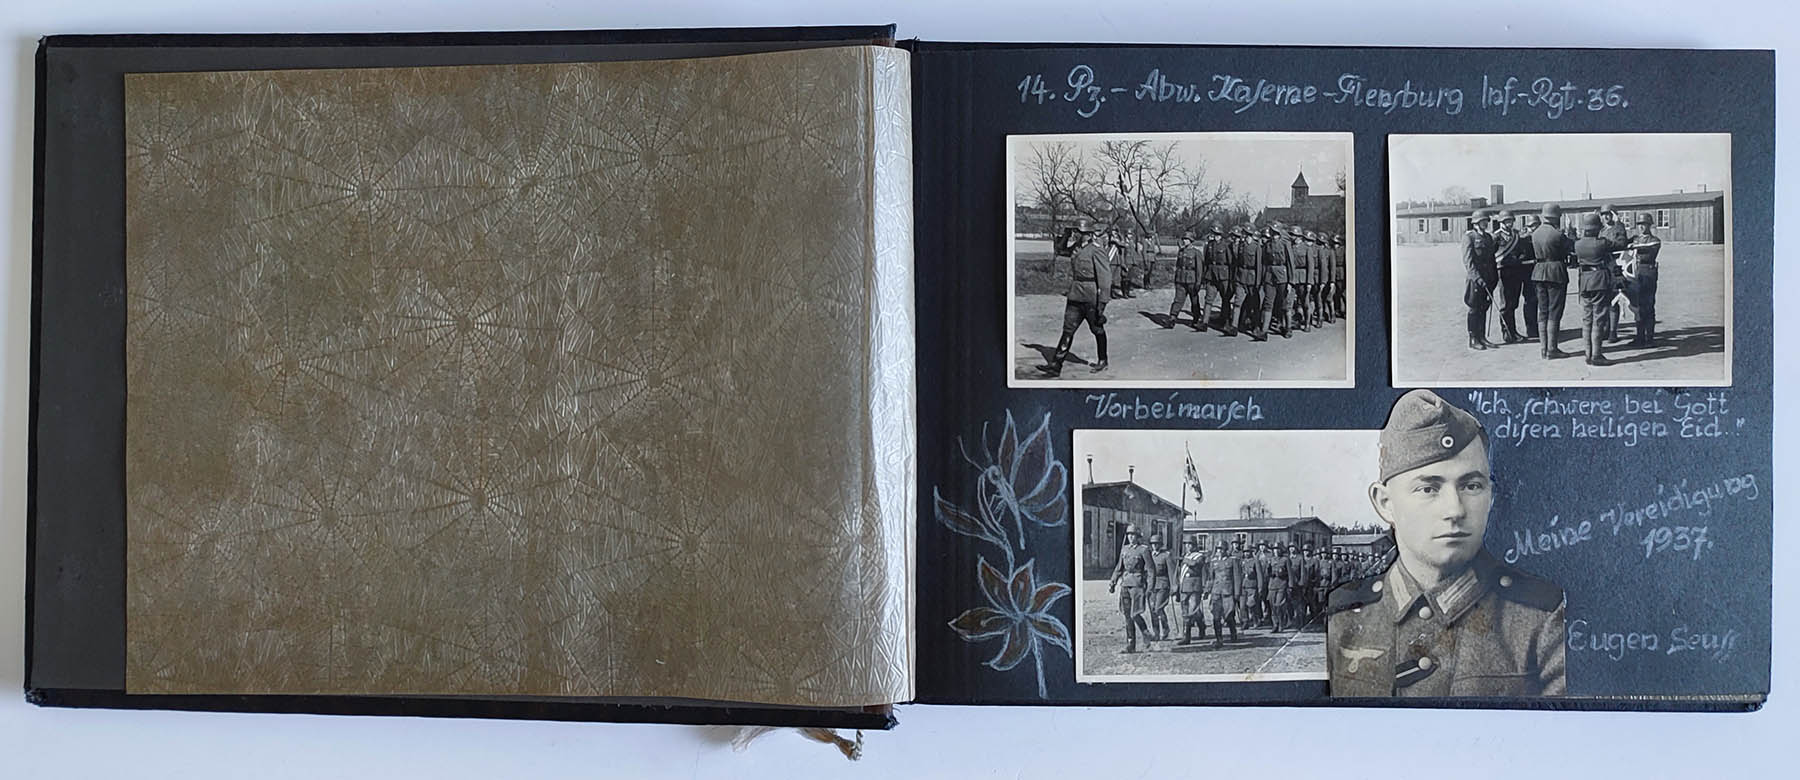 14. Pz.- Abw. Kaserne-Flensburg Inf.-Rgt. 36.
Vorbeimarsch
"Ich schwere bei Gott
disen heiligen Eid..."
Meine Vereidigung
1937.
Eugen Seuss